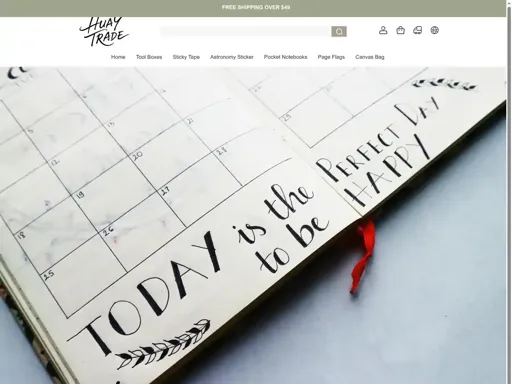 FREE SHIPPING OVER $49
HUAY
TRADE
Home Tool Boxes Sticky Tape Astronomy Sticker Pocket Notebooks Page Flags Canvas Bag
5
12
18
19
20
21
23
25
26
27
TODAY is the PERFECT DAY
to be HAPPY